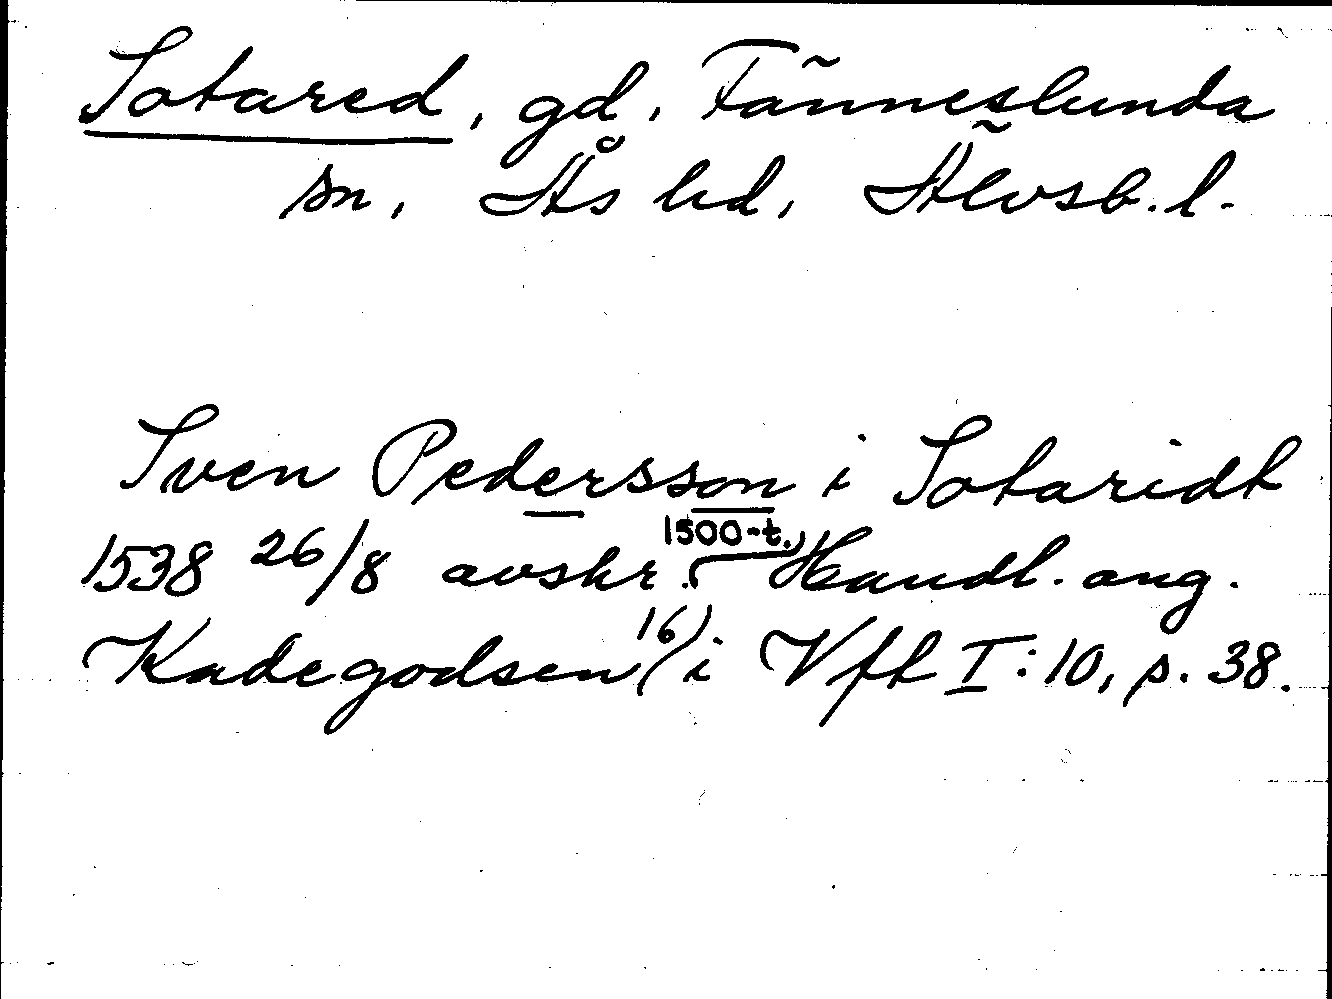 Sotared, gd, Fänneslunda
sn, Ås hd, Älvsb. l.
Sven Pedersson i Sotaridt
1538 26/8 avskr. (1500-t.) Handl. ang.
Kadegodsen 16) i Vft I:10, s. 38.